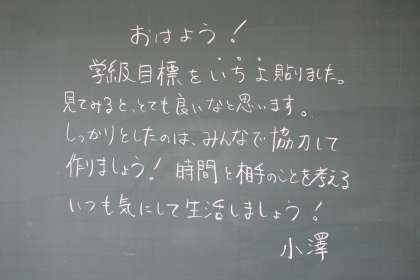 おはよう！
学級目標をいちよ貼りました。
見てみると、とても良いなと思います。
しっかりとしたのは、みんなで協力して
作りましょう！時間と相手のことを考える
いつも気にして生活しましょう！
小澤